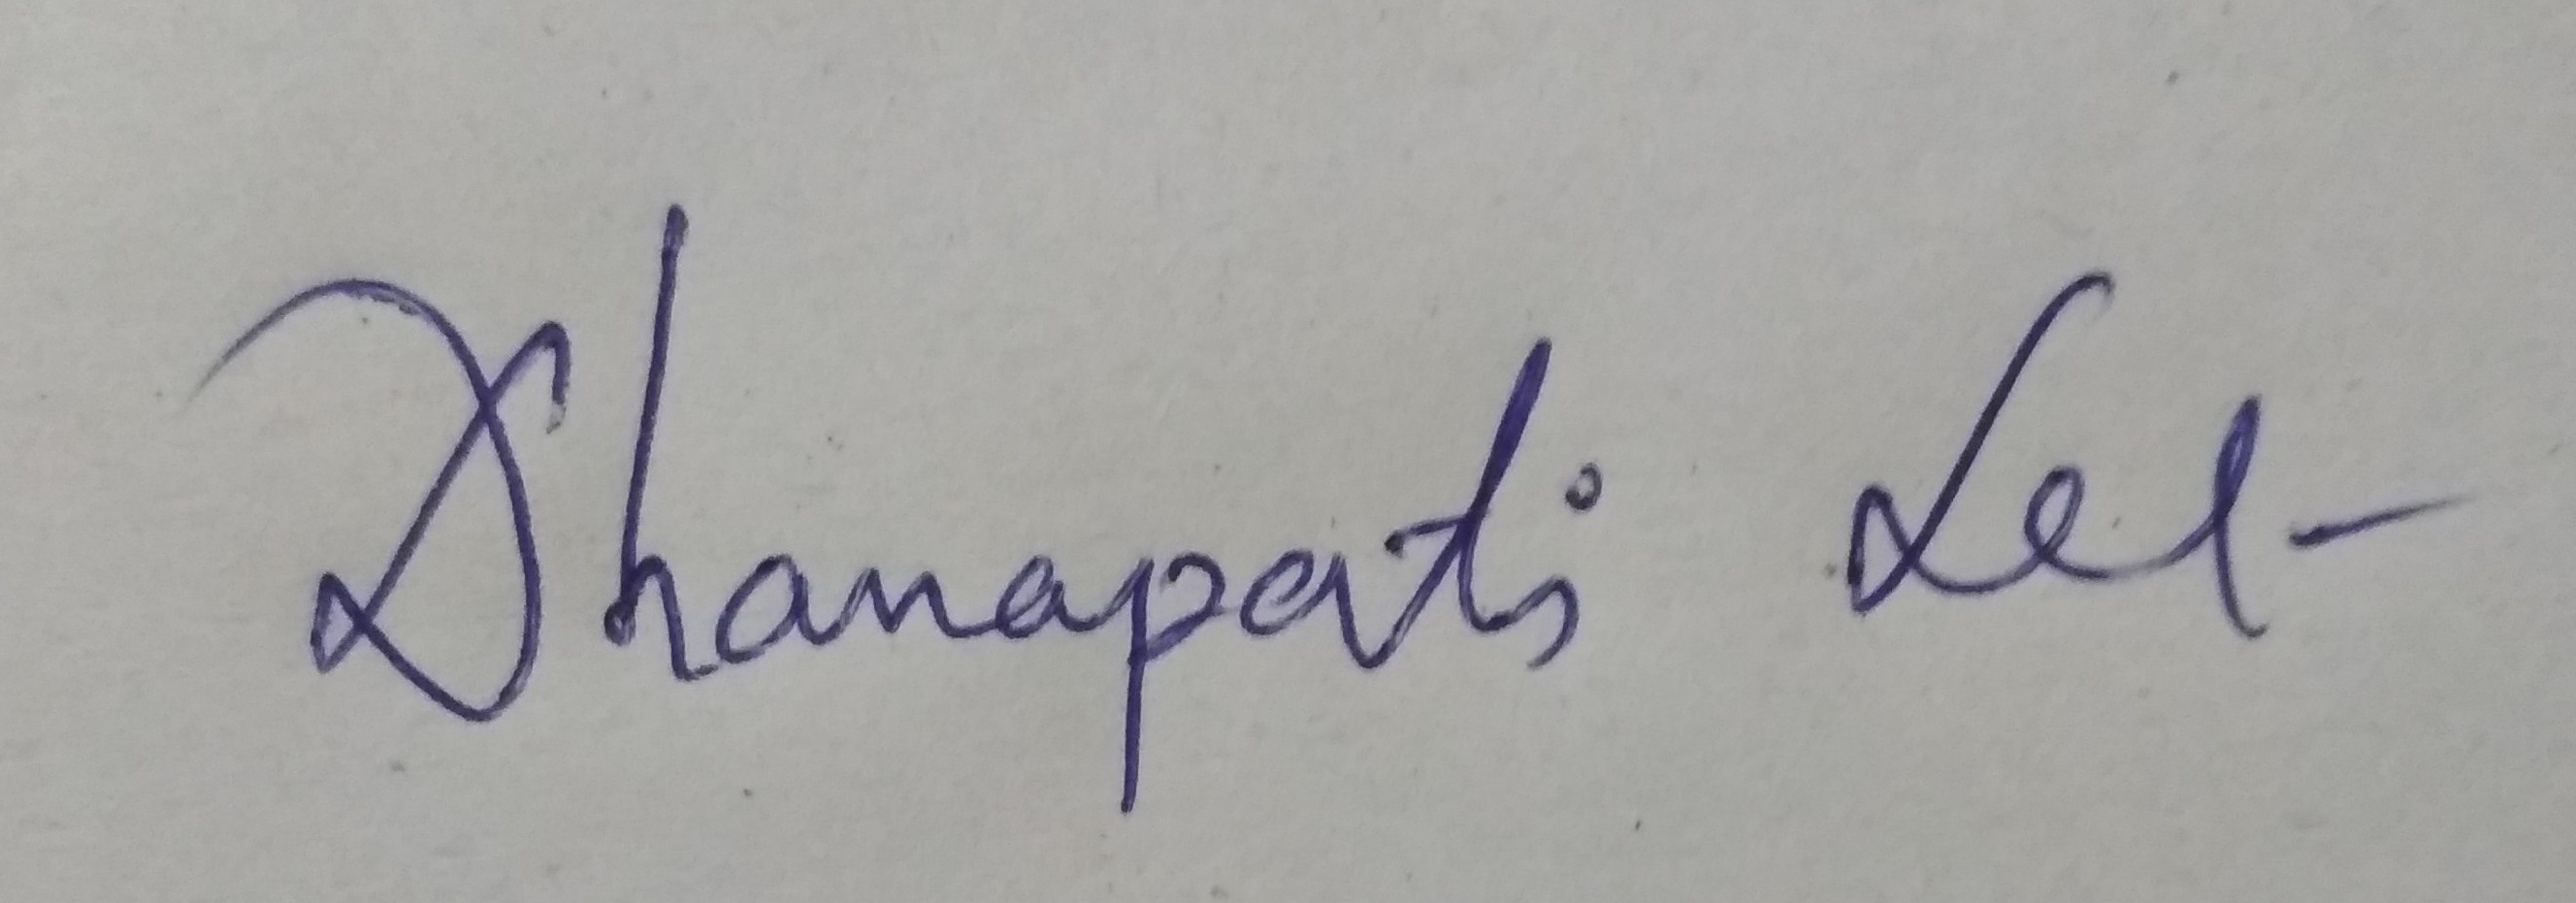 Dhanapati Let